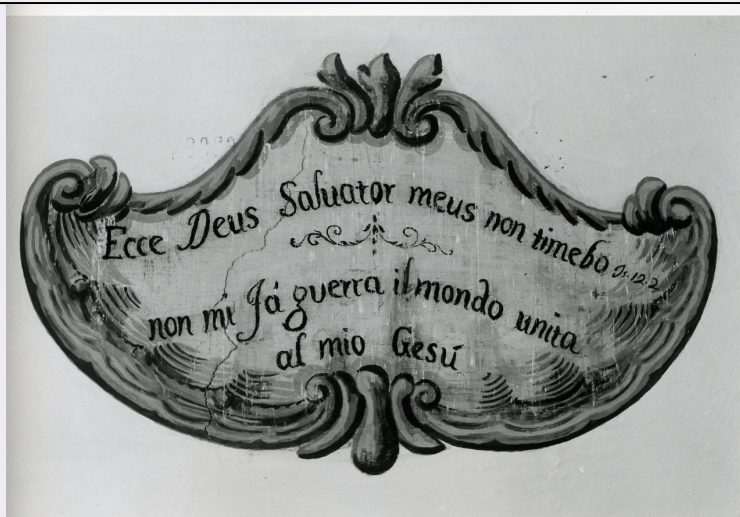 Ecce Deus Saluator meus non timebo Is. 12. 2
non mi fá guerra il mondo unita
al mio Gesú